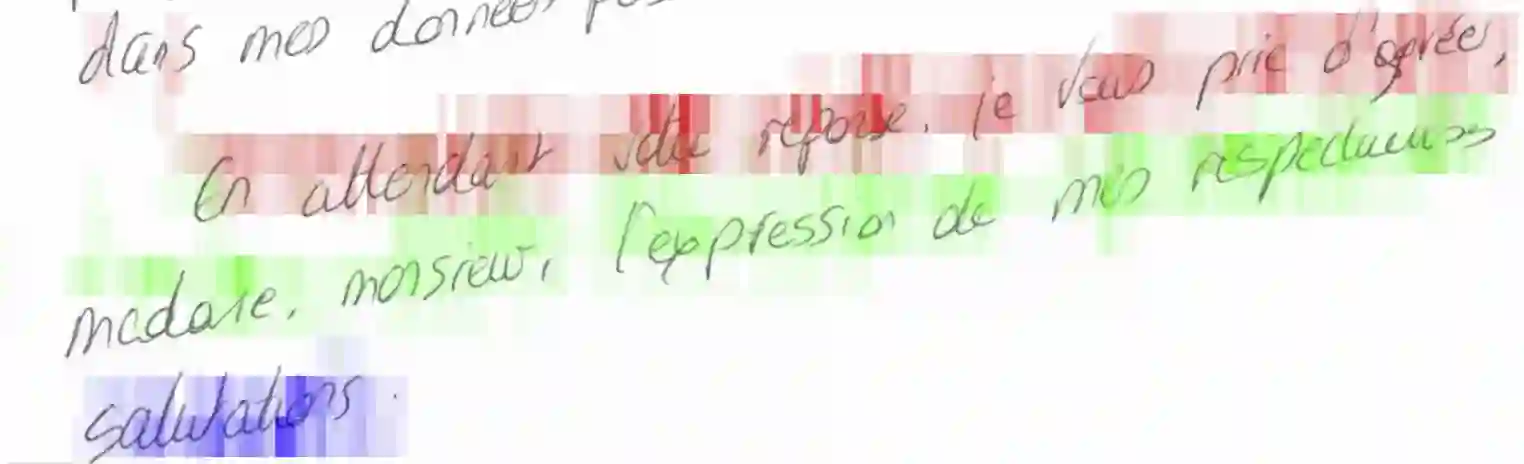 dans mes données
En attendant votre réponse, je vous prie d'agréer,
madame, monsieur, l'expression de mes respectueuses
salutations.